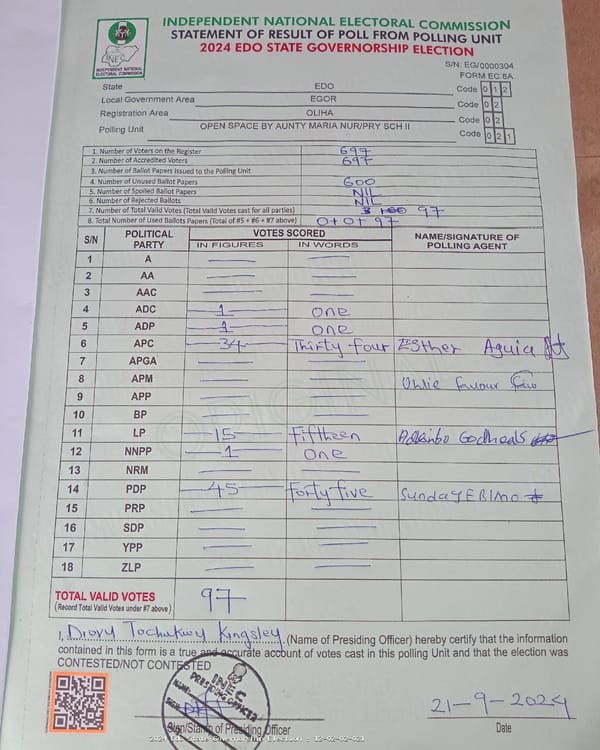 INDEPENDENT NATIONAL ELECTORAL COMMISSION
STATEMENT OF RESULT OF POLL FROM POLLING UNIT
2024 EDO STATE GOVERNORSHIP ELECTION
INEC
INDEPENDENT NATIONAL ELECTORAL COMMISSION
S/N: EG/0000304
FORM EC 8A
State EDO Code 0 1 2
Local Government Area EGOR Code 0 2
Registration Area OLIHA Code 0 2
Polling Unit OPEN SPACE BY AUNTY MARIA NUR/PRY SCH II Code 0 2 1
1. Number of Voters on the Register 697
2. Number of Accredited Voters 697
3. Number of Ballot Papers Issued to the Polling Unit
4. Number of Unused Ballot Papers 600
5. Number of Spoiled Ballot Papers NIL
6. Number of Rejected Ballots NIL
7. Number of Total Valid Votes (Total Valid Votes cast for all parties) 97
8. Total Number of Used Ballots Papers (Total of #5 + #6 + #7 above) 0+0+97
S/N POLITICAL PARTY VOTES SCORED NAME/SIGNATURE OF POLLING AGENT
IN FIGURES IN WORDS
1 A
2 AA
3 AAC
4 ADC 1 one
5 ADP 1 one
6 APC 34 Thirty four Esther Aguia
7 APGA
8 APM favour
9 APP
10 BP
11 LP 15 fifteen
12 NNPP 1 one
13 NRM
14 PDP 45 forty five Sunday
15 PRP
16 SDP
17 YPP
18 ZLP
TOTAL VALID VOTES 97
(Record Total Valid Votes under #7 above)
I, Tochukwu Kingsley (Name of Presiding Officer) hereby certify that the information
contained in this form is a true and accurate account of votes cast in this polling Unit and that the election was
CONTESTED/NOT CONTESTED
INEC
PRESIDING OFFICER
NAME:
SIGN:
21-9-2024
Sign/Stamp of Presiding Officer Date
2024 Edo State Governorship Election : 12-02-02-021